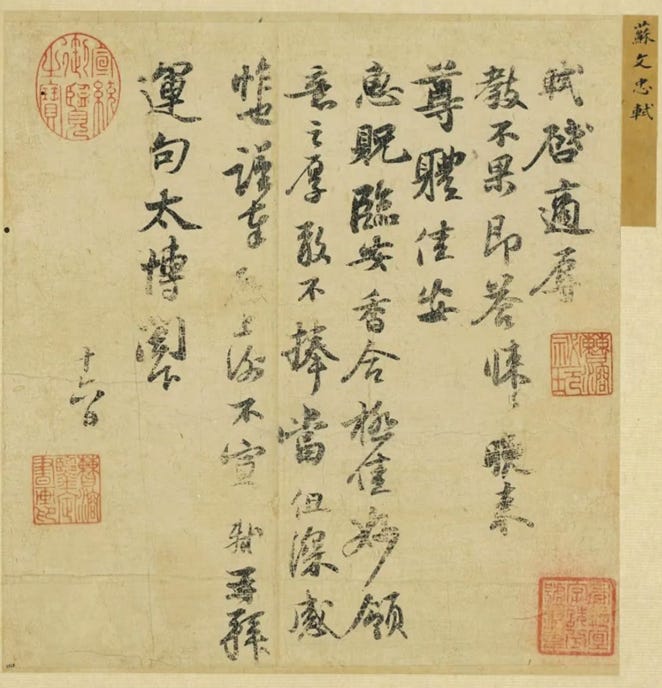 蘇文忠軾
軾啓適辱
教不果即答悚〻晚來
尊體佳安
惠貺臨安香合極佳妙領
意之厚敢不捧當但深感
怍也謹奉啓上謝不宣 軾再拜
運句太博閣下
十六日
宣統御覽之寶